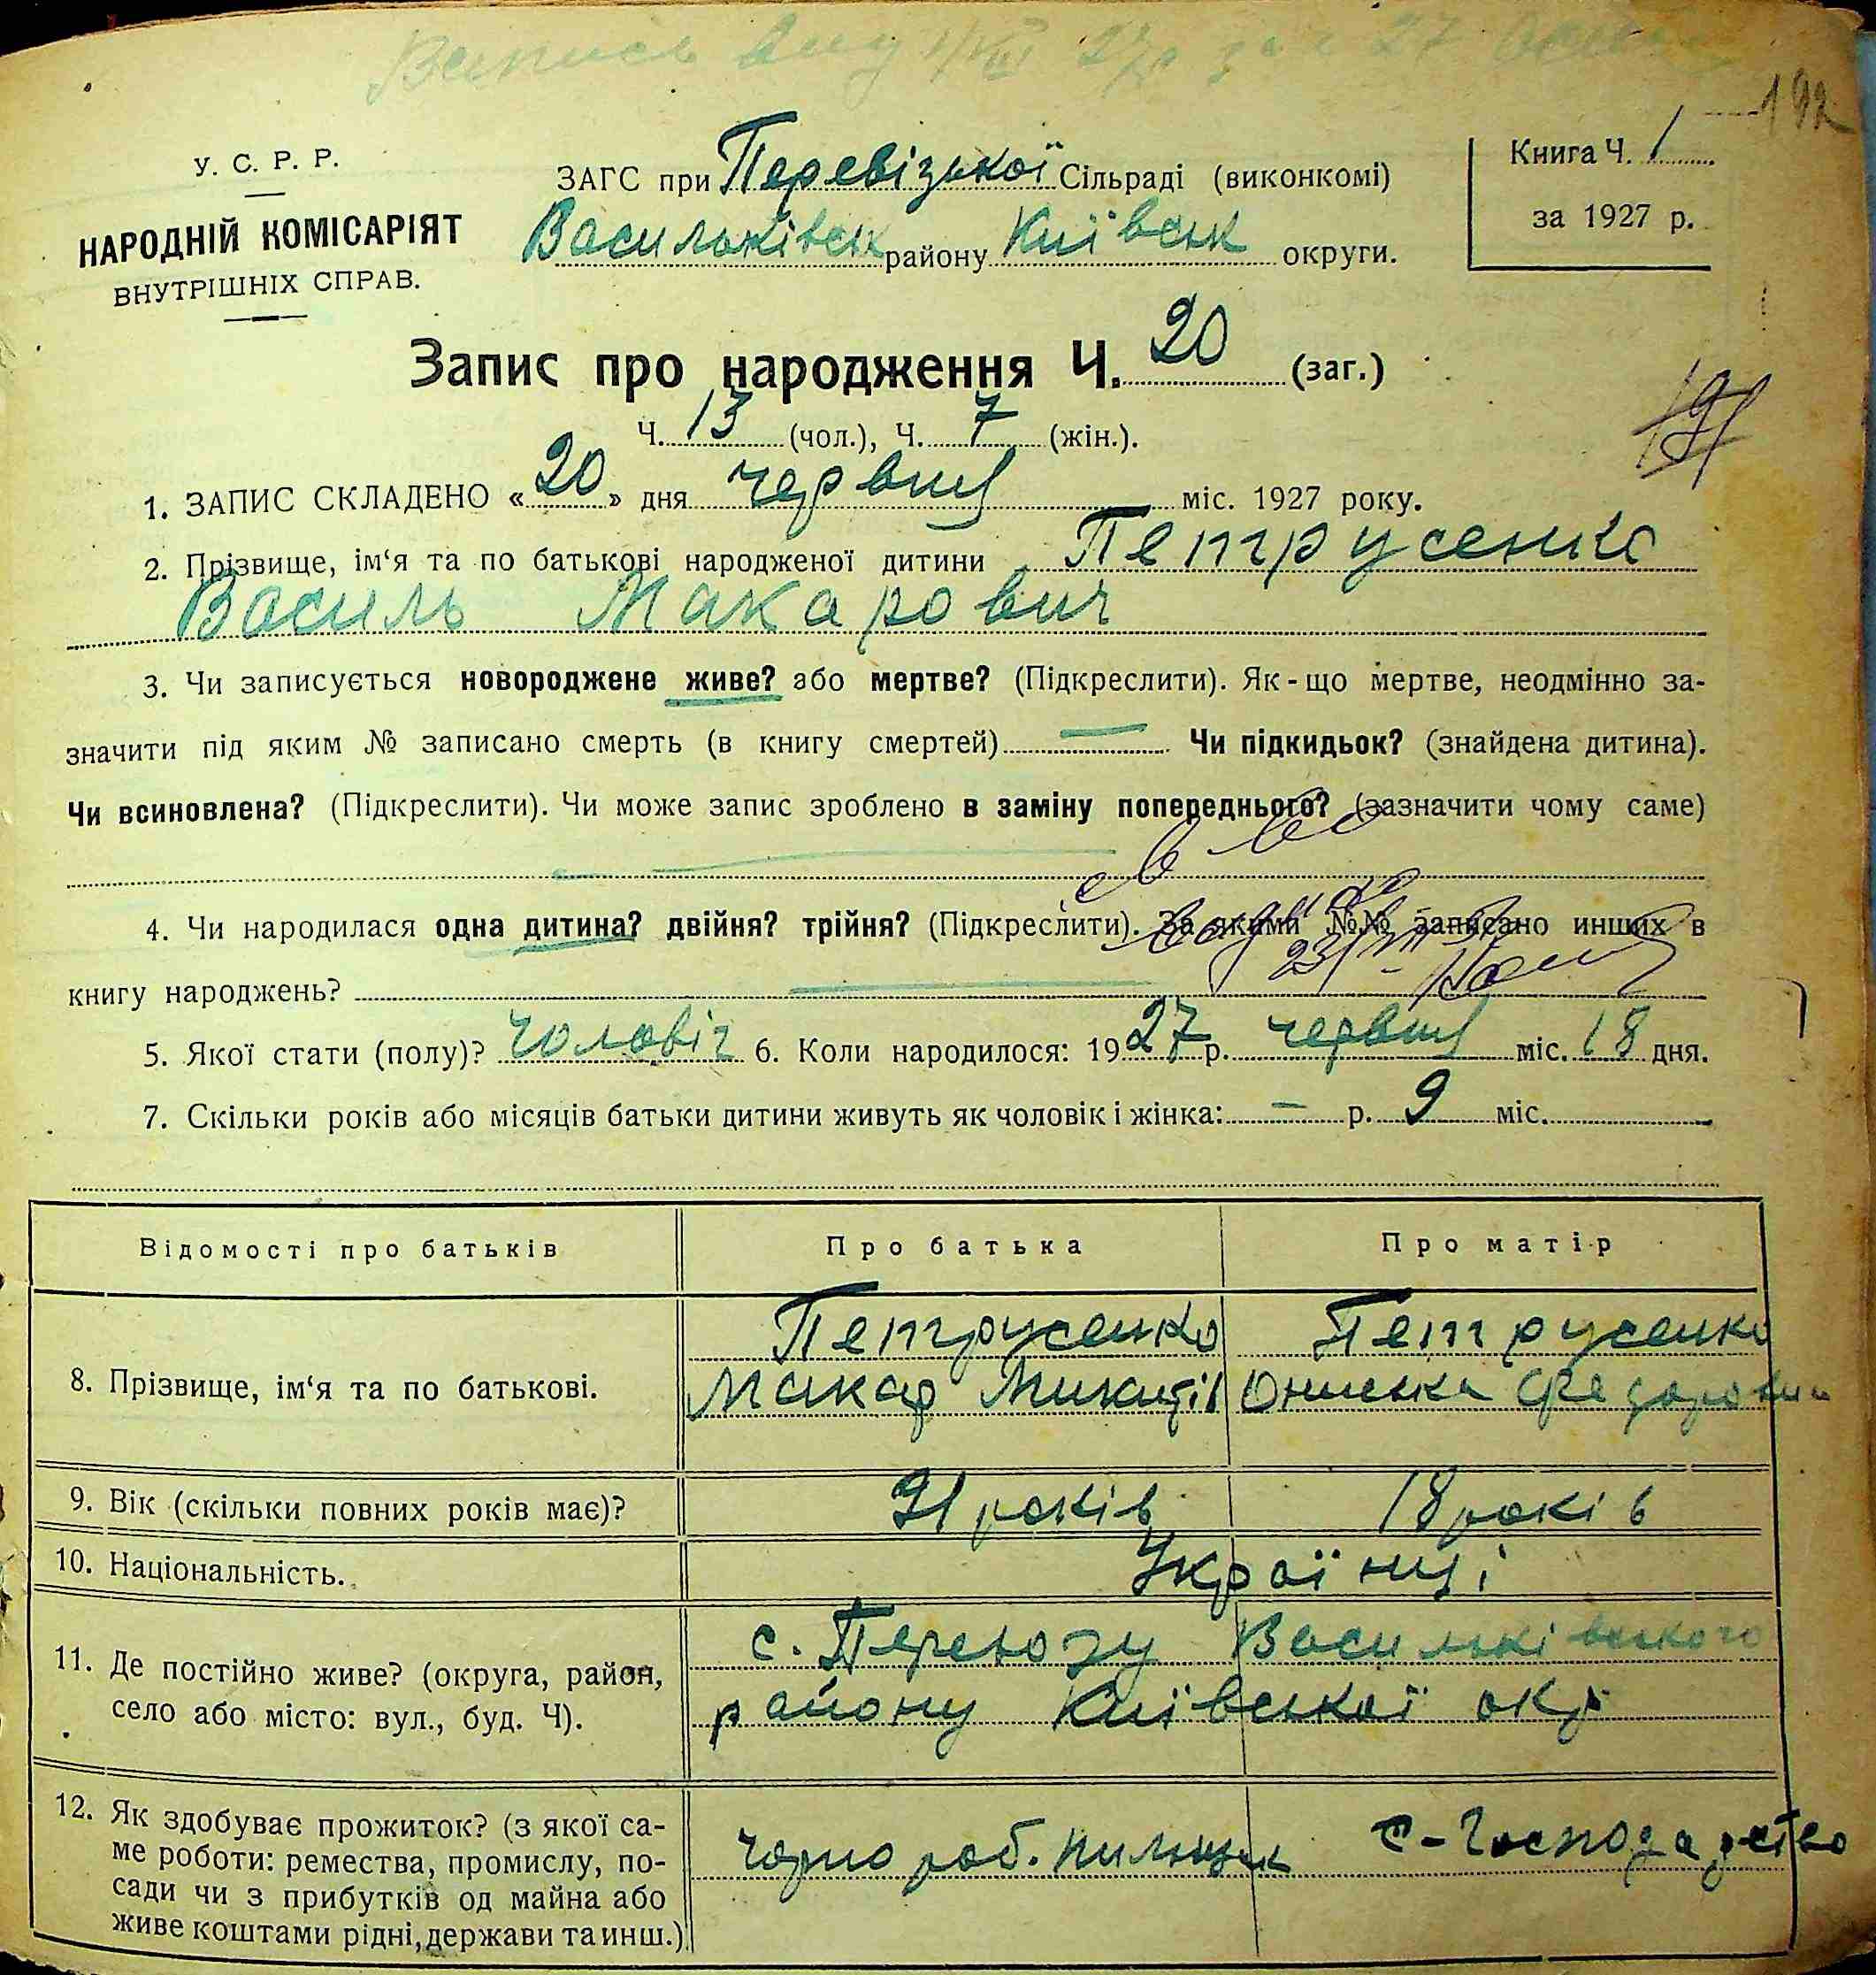 192
У. С. Р. Р.
НАРОДНІЙ КОМІСАРІЯТ
ВНУТРІШНІХ СПРАВ.
ЗАГС при Перевізької Сільраді (виконкомі)
Васильківськ району Київськ округи.
Книга Ч. 1
за 1927 р.
Запис про народження Ч. 20 (заг.)
Ч. 13 (чол.), Ч. 7 (жін.).
191
1. ЗАПИС СКЛАДЕНО «20» дня червня міс. 1927 року.
2. Прізвище, ім‘я та по батькові народженої дитини Петрусенко
Василь Макарович
3. Чи записується новороджене живе? або мертве? (Підкреслити). Як-що мертве, неодмінно за-
значити під яким № записано смерть (в книгу смертей) — Чи підкидьок? (знайдена дитина).
Чи всиновлена? (Підкреслити). Чи може запис зроблено в заміну попереднього? (зазначити чому саме)
4. Чи народилася одна дитина? двійня? трійня? (Підкреслити). За якими №№ записано инших в
книгу народжень? —
5. Якої стати (полу)? чоловіч 6. Коли народилося: 1927 р. червня міс. 18 дня.
7. Скільки років або місяців батьки дитини живуть як чоловік і жінка: — р. 9 міс.
Відомості про батьків Про батька Про матір
8. Прізвище, ім‘я та по батькові.
Петрусенко Петрусенко
Макар Микитів Ониська Федоровни
9. Вік (скільки повних років має)? 21 років 18 років
10. Національність. Українці
11. Де постійно живе? (округа, район,
село або місто: вул., буд. Ч).
с. Перевозу Васильківського
району Київської окр
12. Як здобуває прожиток? (з якої са-
ме роботи: ремества, промислу, по-
сади чи з прибутків од майна або
живе коштами рідні, держави та инш.)
чорно роб. пильщик с-господарство